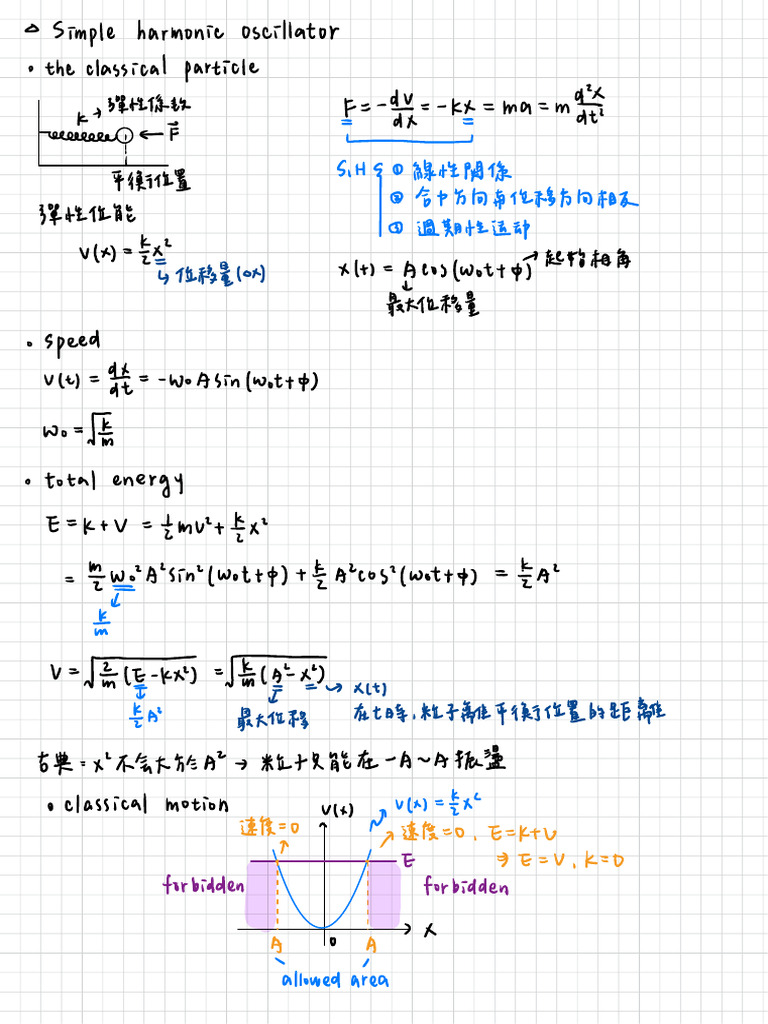 △ Simple harmonic oscillator
• the classical particle
k → 彈性係數
← F⃗
平衡位置
F = -dV/dx = -kx = ma = m d²x/dt²
S.H ① 線性關係
② 合力方向與位移方向相反
③ 週期性运动
彈性位能
V(x) = k/2 x²
↳ 位移量(Δx)
x(t) = A cos(ω₀t + φ) → 起始相角
↓
最大位移量
• speed
v(t) = dx/dt = -ω₀ A sin(ω₀t + φ)
ω₀ = √(k/m)
• total energy
E = K + V = 1/2 mv² + k/2 x²
= m/2 ω₀² A² sin²(ω₀t + φ) + k/2 A² cos²(ω₀t + φ) = k/2 A²
k/m
V = √(2/m (E - kx²)) = √(k/m (A² - x²)) → x(t)
k/2 A²
最大位移
在t時,粒子離平衡位置的距離
古典 = x² 不会大於 A² → 粒子只能在 -A ~ A 振盪
• classical motion
V(x)
V(x) = k/2 x²
速度=0
速度=0, E=K+V
⇒ E=V, K=0
E
forbidden
forbidden
0
x
A
A
allowed area